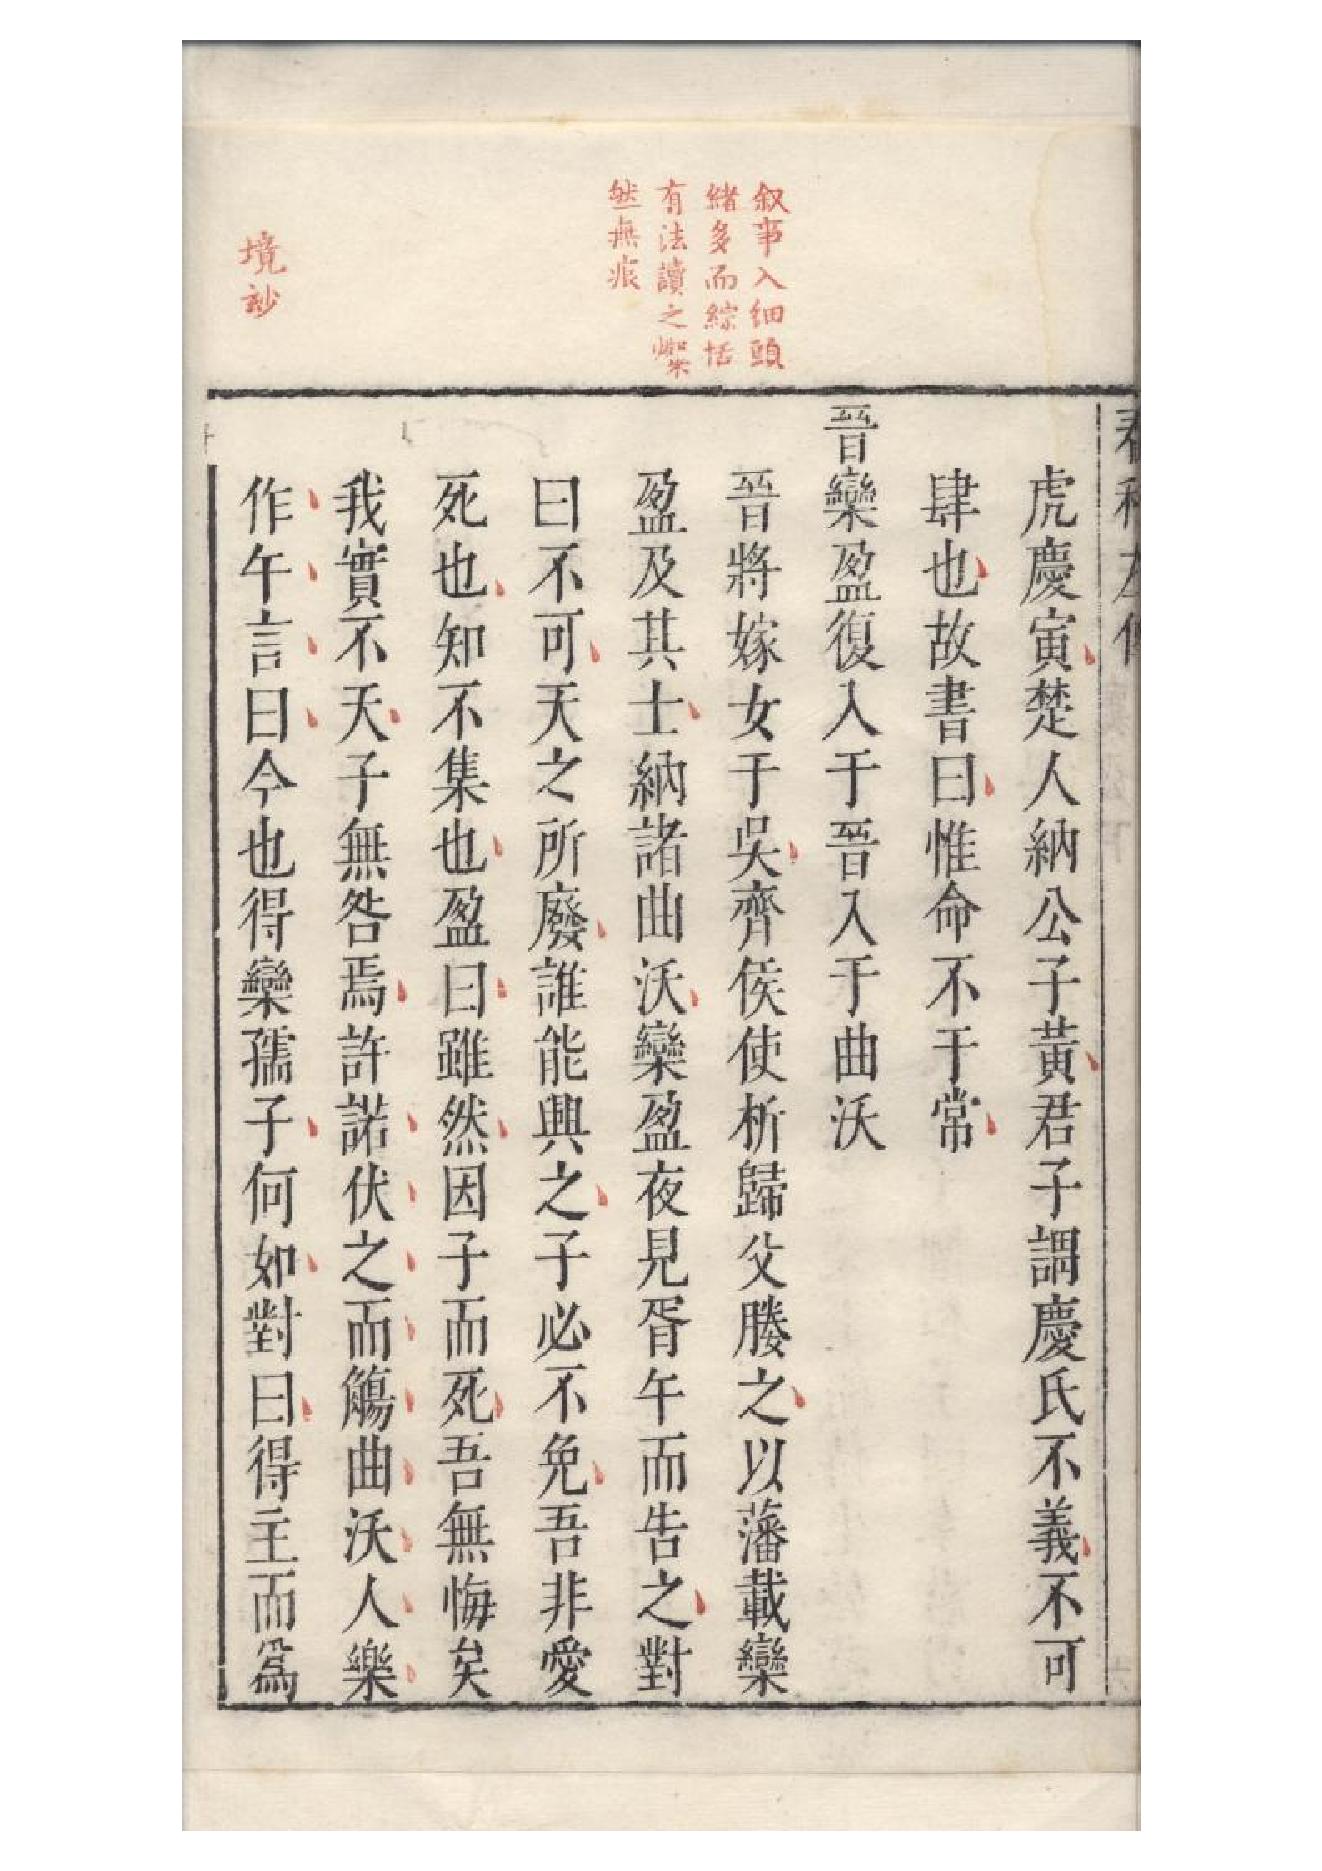 叙事入細頭
緒多而綜括
有法讀之燦
然無痕
境玅
春秋左傳
虎慶寅楚人納公子黃君子謂慶氏不義不可
肆也故書曰惟命不于常
晉欒盈復入于晉入于曲沃
晉將嫁女于吳齊侯使析歸父媵之以藩載欒
盈及其士納諸曲沃欒盈夜見胥午而告之對
曰不可天之所廢誰能興之子必不免吾非愛
死也知不集也盈曰雖然因子而死吾無悔矣
我實不天子無咎焉許諾伏之而觴曲沃人樂
作午言曰今也得欒孺子何如對曰得主而爲